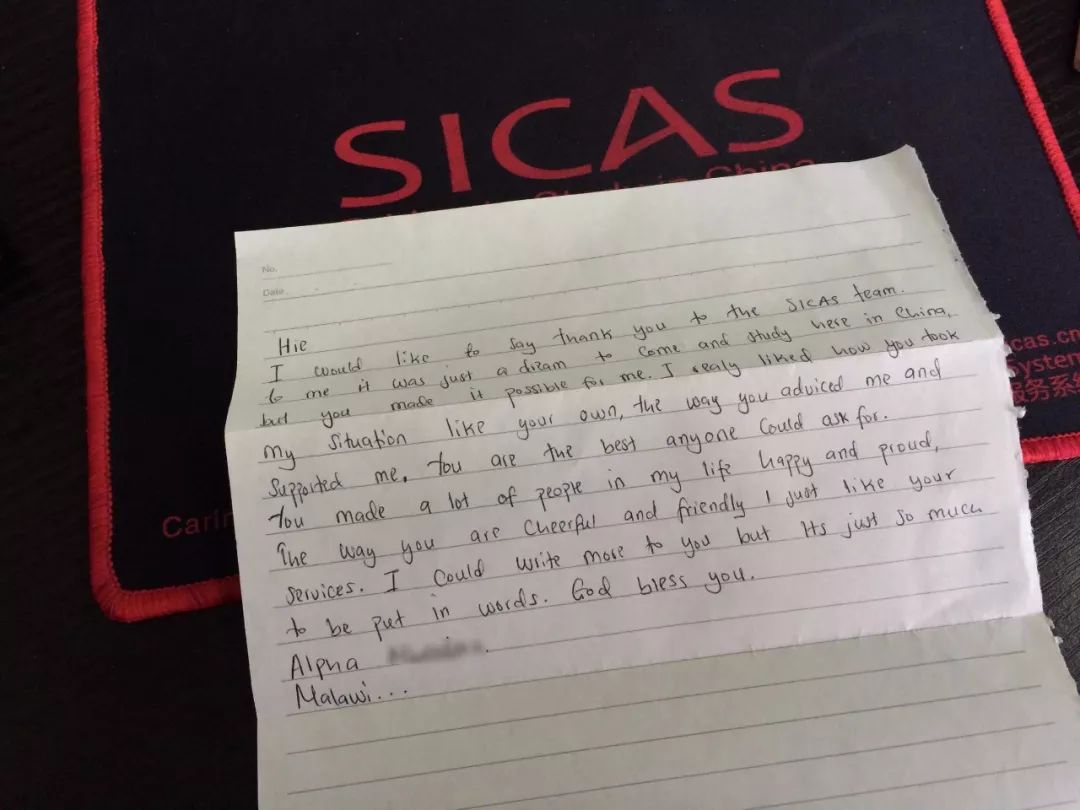 SICAS
No.
Date.
Hie
I would like to say thank you to the SICAS team.
to me it was just a dream to come and study here in China,
but you made it possible for me. I realy liked how you took
my situation like your own, the way you adviced me and
supported me. You are the best anyone could ask for.
You made a lot of people in my life happy and proud,
The way you are cheerful and friendly I just like your
services. I could write more to you but its just so much
to be put in words. God bless you.
Alpha
Malawi...
cas.cn
ystem
服务系统
Carin